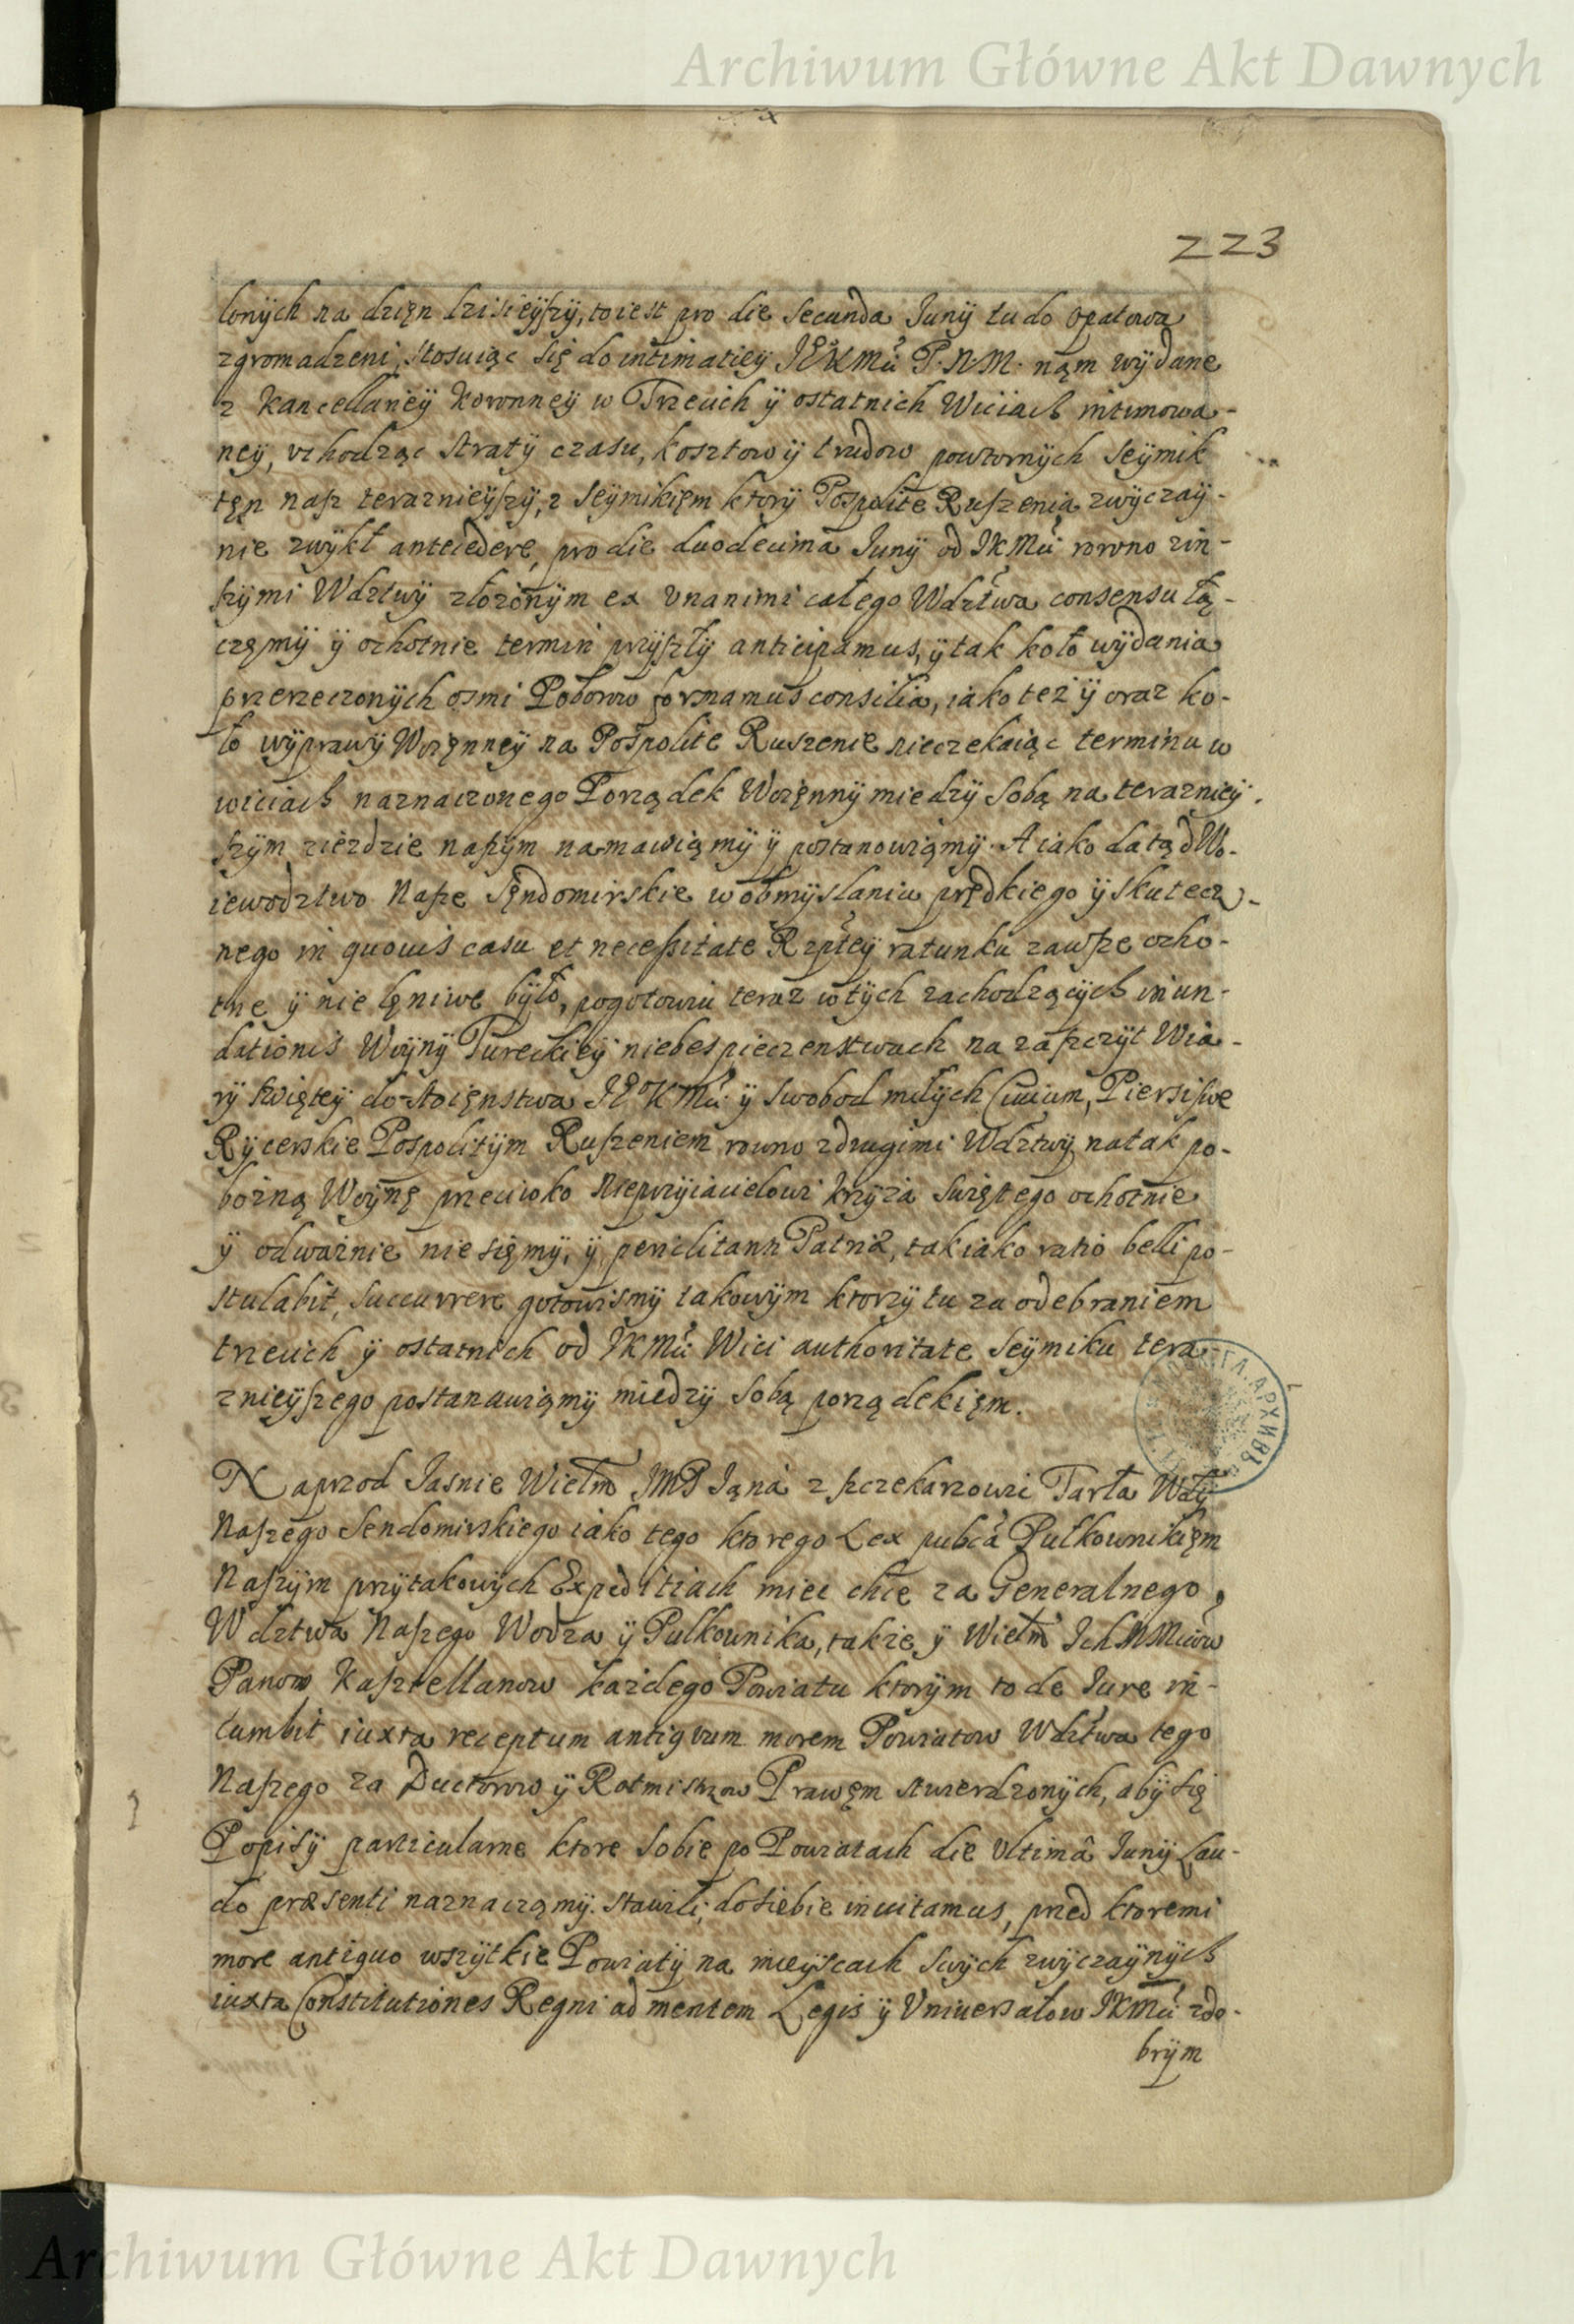 Archiwum Główne Akt Dawnych
223
lonÿch na dzięn dzisieÿszÿ, to iest pro die Secunda Junÿ tu do Opatowa
zgromadzeni, stosuiąc się do intimatieÿ JEoKMći P. N. M. nąm wÿdane
z Kancellarieÿ Koronneÿ w Trzeuich ÿ ostatnich Wiciach intimowa-
neÿ, vchodząc stratÿ czasu, kosztow ÿ trudow powtornÿch Seÿmik
tęn nasz terazneÿszÿ, z Seÿmikięm ktorÿ Pospolite Ruszenia zwÿczaÿ-
nie zwÿkł antecedere, pro die duodecima Junÿ od JKMći rowno zin-
szÿmi Wdztwÿ złozonÿm ex vnanimi całego Wdztwa consensu łą-
częmÿ ÿ ochotnie termin przÿszłÿ anticipamus, ÿ tak koło wÿdania
przerzeczonÿch osmi Poborow formamus consilia, iako też ÿ oraz ko-
ło wÿprawÿ Woięnneÿ na Pospolite Ruszenie nieczekaiąc terminu w
wiciach naznaczonego Porządek Woięnnÿ miedzÿ sobą na terazniey-
szÿm zieździe naszÿm namawiąmÿ ÿ postanowiąmÿ. A iako datąd Wo-
iewodztwo Nasze Sęndomirskie w obmÿslaniu prędkiego ÿ skutecz-
nego in quouis casu et necessitate Rzptey ratunku zawsze ocho-
tne ÿ nie lęniwe bÿło, pogotowiu teraz w tÿch zachodzącÿch inun-
dationis Woÿnÿ Tureckieÿ niebespieczenstwach na zaszczÿt Wia-
rÿ Swięteÿ dostoięnstwa JEoKMći ÿ swobod miłÿch Ciuium, Piersi swe
Rÿcerskie Pospolitÿm Ruszeniem rowno zdrugimi Wdztwÿ na tak po-
bożną Woÿnę przeciwko Nieprzÿiacielowi krzÿża Swiętego ochotnie
ÿ odważnie niesięmÿ, ÿ periclitanti Patriæ, tak iako ratio belli po-
stulabit, succurrere gotowismÿ takowÿm ktorzÿ tu za odebraniem
trzeuich ÿ ostatnich od JKMći Wici authoritate Seÿmiku tera-
znieÿszego postanawiąmÿ miedzÿ sobą porządekięm.
Naprzod Jasnie Wielm JMP Jąna z szczekarzowi Tarła Wdÿ
Naszego Sendomirskiego iako tego ktorego Lex pubca Pułkownikięm
Naszÿm przÿ takowÿch Expeditiach miec chce za Generalnego
Wdztwa Naszego Wodza ÿ Pułkownika, także ÿ Wielm Ich MMciow
Panow Kasztellanow każdego Powiatu ktorÿm to de Jure in-
cumbit iuxta receptum antiqvum morem Powiatow Wdztwa tego
Naszego za Ductorow ÿ Rotmistrzow Prawęm stwierdzonÿch, abÿ się
Popisÿ particularne ktore sobie po Powiatach die vltimâ Junÿ Lau-
do præsenti naznaczamÿ. stawili, do siebie inuitamus, przed ktoremi
more antiquo wszÿtkie Powiatÿ na mieÿscach swÿch zwÿczaÿnÿch
iuxta Constitutiones Regni ad mentem Legis ÿ Vniuersałow JKMći zdo-
brÿm
Archiwum Główne Akt Dawnych